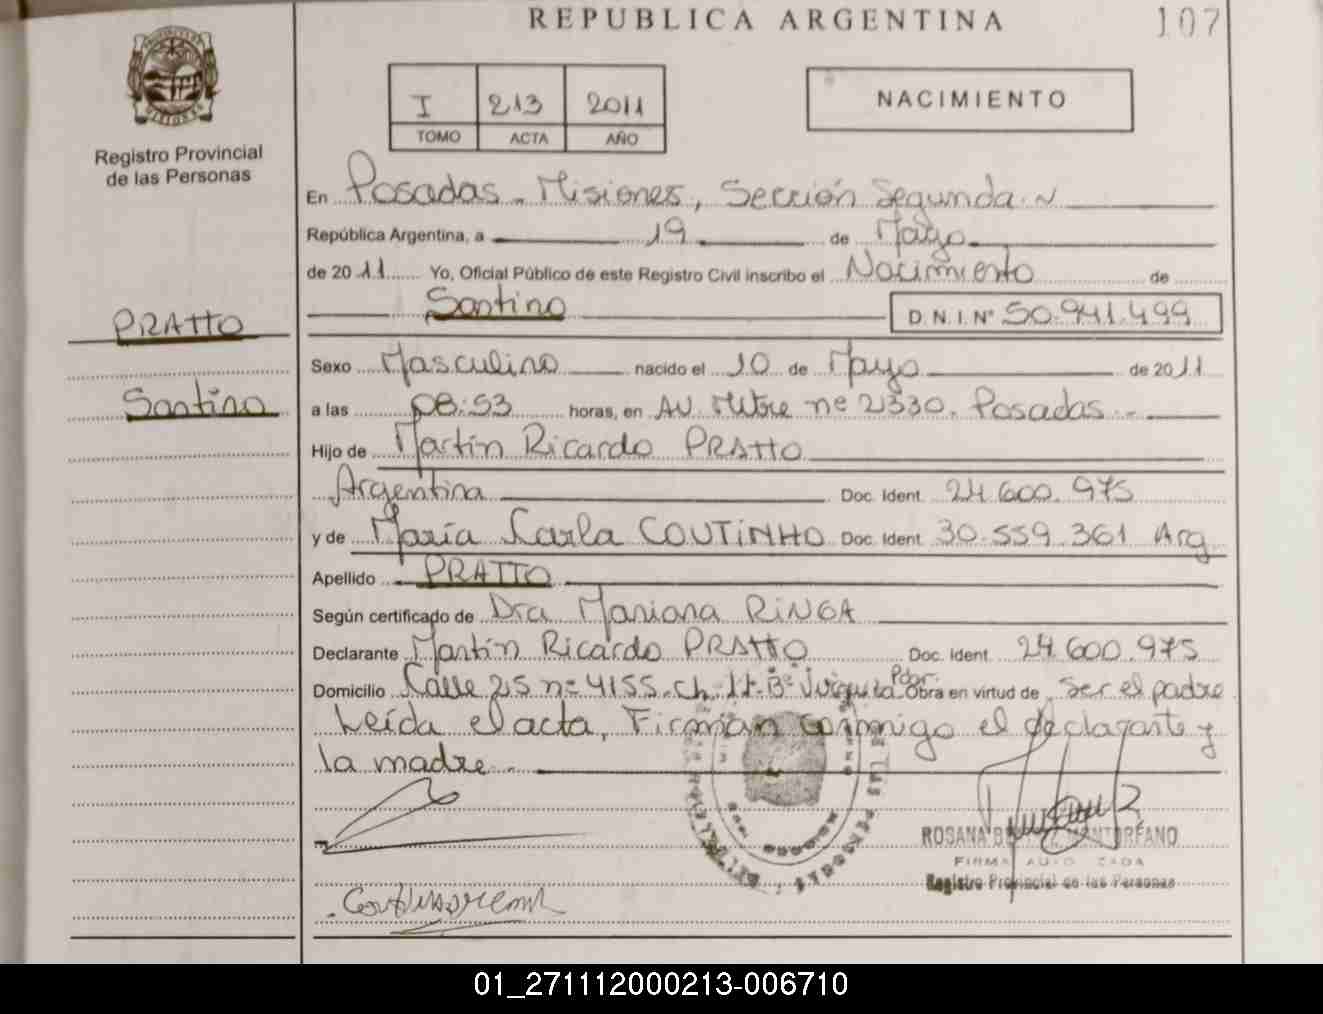 REPUBLICA ARGENTINA
107
Registro Provincial
de las Personas
I 213 2011
TOMO ACTA AÑO
NACIMIENTO
En Posadas - Misiones, Sección Segunda
República Argentina, a 19 de Mayo
de 2011 Yo, Oficial Público de este Registro Civil inscribo el Nacimiento de
Santino D.N.I.Nº 50.941.499
PRATTO
Santino
Sexo Masculino nacido el 10 de Mayo de 2011
a las 08:53 horas, en AV. Mitre nº 2330. Posadas
Hijo de Martín Ricardo PRATTO
Argentina Doc. Ident. 24.600.975
y de María Carla COUTINHO Doc. Ident. 30.559.361 Arg
Apellido PRATTO
Según certificado de Dra Mariana RINGA
Declarante Martín Ricardo PRATTO Doc. Ident. 24.600.975
Domicilio Calle 25 nº 4155. Ch. Bº Pdas. Obra en virtud de ser el padre
Leída el acta, Firman conmigo el declarante y
la madre.
ROSANA MONTORFANO
FIRMA AUTORIZADA
Registro Provincial de las Personas
01_271112000213-006710